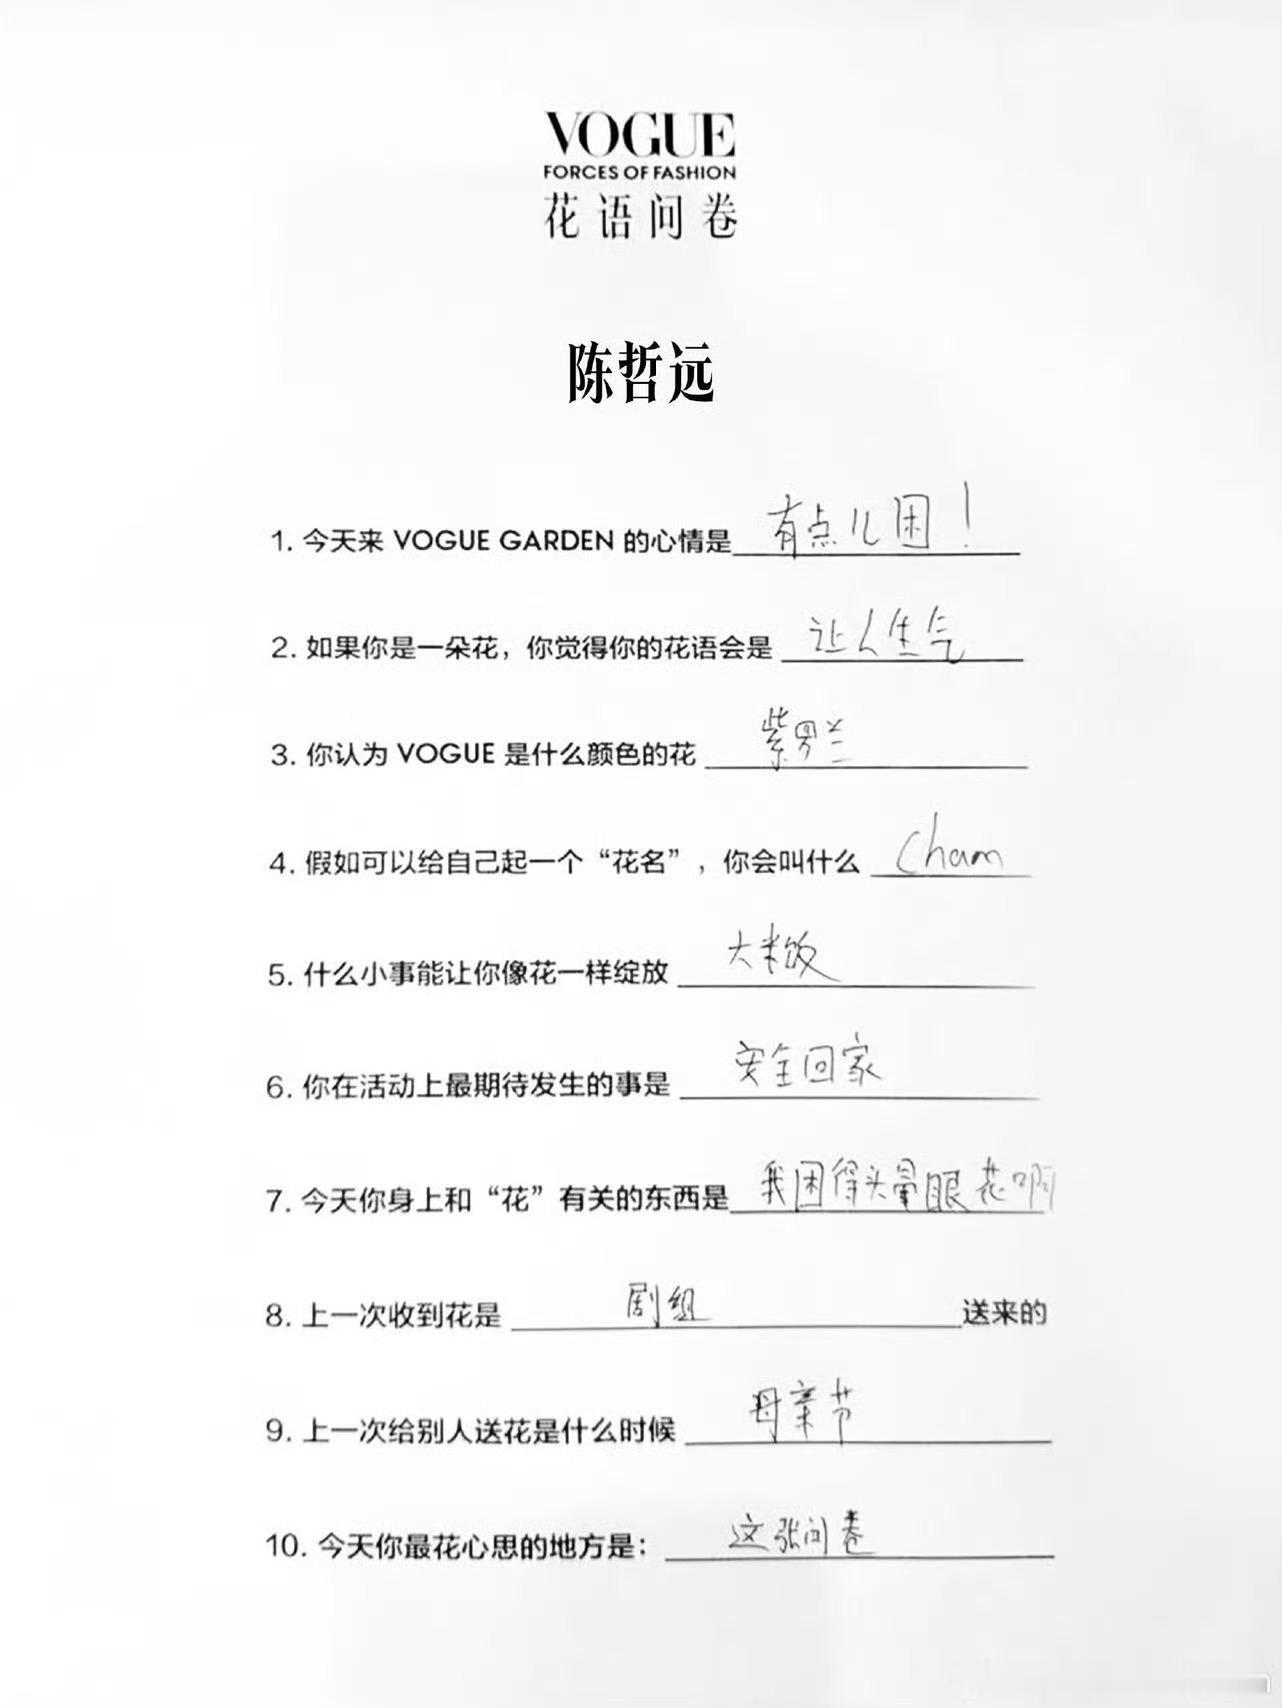 VOGUE
FORCES OF FASHION
花语问卷
陈哲远
1. 今天来 VOGUE GARDEN 的心情是 有点儿困！
2. 如果你是一朵花，你觉得你的花语会是 让人生气
3. 你认为 VOGUE 是什么颜色的花 紫罗兰
4. 假如可以给自己起一个“花名”，你会叫什么 Cham
5. 什么小事能让你像花一样绽放 大米饭
6. 你在活动上最期待发生的事是 安全回家
7. 今天你身上和“花”有关的东西是 我困得头晕眼花啊
8. 上一次收到花是 剧组 送来的
9. 上一次给别人送花是什么时候 母亲节
10. 今天你最花心思的地方是： 这张问卷